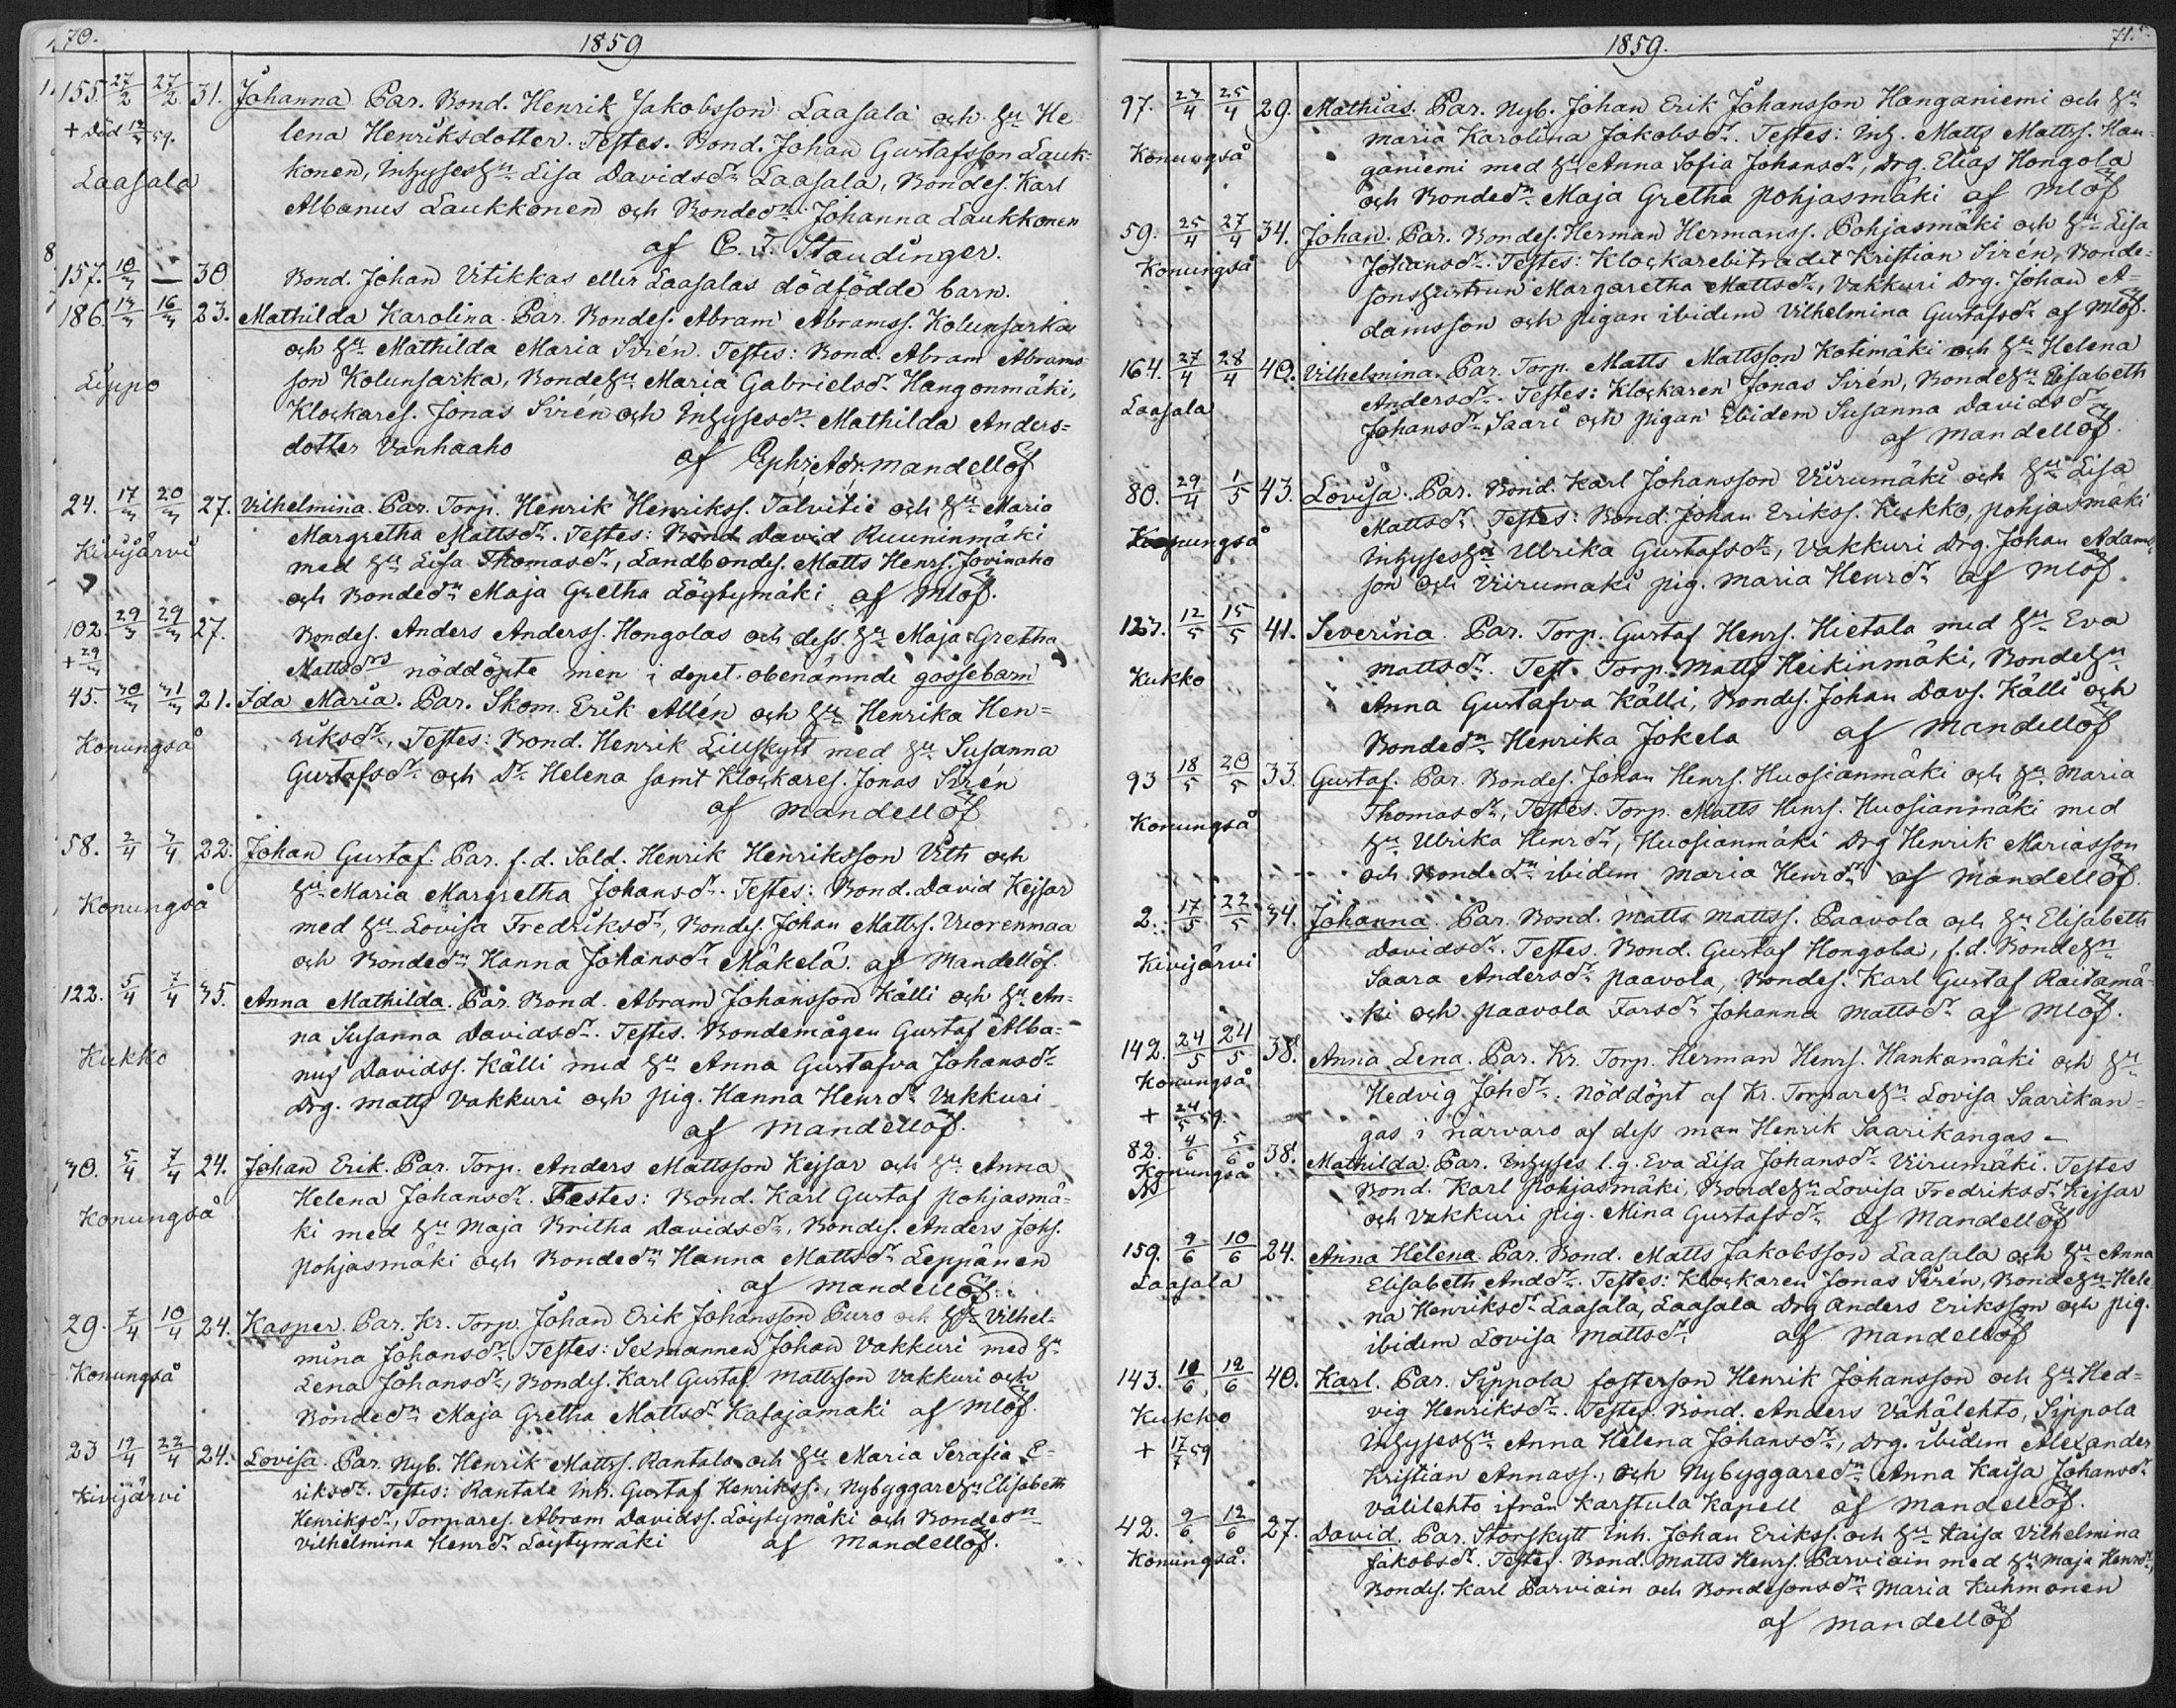 70.
1859
155. 27/2 27/2 31. Johanna. Par. Bond. Henrik Jakobsson Laasala och Hu He-
+ död 12/3 59. lena Henriksdotter. Testes. Bond. Johan Gustafsson Lauk-
Laasala konen, Inhyseshu Lisa Davidsdr Laasala, Bondes. Karl
Albanus Laukkonen och Bondedn Johanna Laukkonen
af C. J. Staudinger.
157. 10/3 — 30 Bond. Johan Vitikkas eller Laasalas dödfödde barn.
186. 13/3 16/3 23. Mathilda Karolina. Par. Bondes. Abram Abramss. Kolunsarka
och Hu Mathilda Maria Sirén. Testes: Bond. Abram Abrams-
Lippo son Kolunsarka, Bondehu Maria Gabrielsdr Hangonmäki,
Klockares. Jonas Sirén och Inhysesdn Mathilda Anders=
dotter Vanhaaho af Ephr. Adr. Mandellöf
24. 17/3 20/3 27. Vilhelmina. Par. Torp. Henrik Henrikss. Talvitie och Hu Maria
Kivijärvi Margretha Mattsdr. Testes: Bond David Ruuninmäki
med Hu Lisa Thomasdr, Landbondes. Matts Henrs. Jovinaho
och Bondedn Maja Gretha Löytymäki af Mlöf.
102. 29/3 29/3 27. Bondes. Anders Anderss. Hongolas och dess Hu Maja Gretha
+ 29/3 Mattsdrs nöddöpte men i dopet obenämnde gossebarn
45. 30/3 31/3 21. Ida Maria. Par. Skom. Erik Allén och Hu Henrika Hen=
Konungså riksdr, Testes: Bond. Henrik Lillskytt med Hu Susanna
Gustafsdr och Dr Helena samt Klockares. Jonas Sirén
af Mandellöf
58. 2/4 3/4 22. Johan Gustaf. Par. f.d. Sold. Henrik Henriksson Vith och
Konungså Hu Maria Margretha Johansdr. Testes: Bond. David Kejsar
med Hu Lovisa Fredriksdr, Bondes. Johan Mattss. Vuorenmaa
och Bondedn Hanna Johansdr Mäkelä. af Mandellöf.
122. 5/4 7/4 35. Anna Mathilda. Par. Bond. Abram Johansson Källi och Hu An=
na Susanna Davidsdr. Testes. Bondemågen Gustaf Alba=
Kukko nus Davidss. Källi med Hu Anna Gustafva Johansdr
Drg. Matts Vakkuri och pig. Hanna Henrdr Vakkuri
af Mandellöf.
30. 5/4 7/4 24. Johan Erik. Par. Torp. Anders Mattsson Kejsar och Hu Anna
Konungså Helena Johansdr. Testes: Bond. Karl Gustaf Pohjasmä=
ki med Hu Maja Britha Davidsdr, Bondes. Anders Johs.
Pohjasmäki och Bondedn Hanna Mattsdr Leppänen
af Mandellöf.
29. 7/4 10/4 24. Kasper. Par. Kr. Torp. Johan Erik Johansson Puro och Hu Vilhel=
Konungså mina Johansdr. Testes: Sexmannen Johan Vakkuri med Hu
Lena Johansdr, Bondes. Karl Gustaf Mattsson Vakkuri och
Bondedn Maja Gretha Mattsdr Katajamäki af Mlöf.
23 19/4 22/4 24. Lovisa. Par. Nyb. Henrik Mattss. Rantala och Hu Maria Serafia E-
Kivijärvi riksdr. Testes: Rantala Inh. Gustaf Henrikss., Nybyggarehu Elisabeth
Henriksdr, Torpares. Abram Davidss. Löytymäki och Bondedn
Vilhelmina Henrdr Löytymäki af Mandellöf.
71.
1859.
97. 23/4 25/4 29. Mathias. Par. Nyb. Johan Erik Johansson Hanganiemi och Hu
Konungså Maria Karolina Jakobsdr. Testes: Inh. Matts Mattss. Han-
ganiemi med Hu Anna Sofia Johansdr, Drg. Elias Hongola
och Bondedn Maja Gretha Pohjasmäki af Mlöf
59. 25/4 27/4 34. Johan. Par. Bondes. Herman Hermanss. Pohjasmäki och Hu Lisa
Konungså Johansdr. Testes: Klockarebiträdet Kristian Sirén, Bonde=
sonshustrun Margaretha Mattsdr, Vakkuri Drg. Johan A=
damsson och pigan ibidem Vilhelmina Gustafsdr af Mlöf.
164. 27/4 28/4 40. Vilhelmina. Par. Torp. Matts Mattsson Kotimäki och Hu Helena
Laasala Andersdr. Testes: Klockaren Jonas Sirén, Bondehu Elisabeth
Johansdr, Saari och pigan Ibidem Susanna Davidsdr
af Mandellöf.
80. 29/4 1/5 43. Lovisa. Par. Bond. Karl Johansson Viirumäki och Hu Lisa
Konungså Mattsdr. Testes: Bond. Johan Erikss. Kukko, Pohjasmäki
Inhyseshu Ulrika Gustafsdr, Vakkuri Drg. Johan Adams-
son och Viirumäki pig. Maria Henrdr af Mlöf.
123. 12/5 15/5 41. Severina. Par. Torp. Gustaf Henrs. Hietala med Hu Eva
Kukko Mattsdr. Test. Torp. Matts Heikinmäki, Bondehu
Anna Gustafva Källi, Bondes. Johan Davs. Källi och
Bondedn Henrika Jokela af Mandellöf
93 18/5 20/5 33. Gustaf. Par. Bondes. Johan Henrs. Huosianmäki och Hu Maria
Konungså Thomasdr, Testes. Torp. Matts Henrs. Huosianmäki med
Hu Ulrika Henrdr, Huosianmäki Drg Henrik Mariasson
och Bondedn ibidem Maria Henrdr af Mandellöf.
2. 17/5 22/5 34. Johanna. Par. Bond. Matts Mattss. Paavola och Hu Elisabeth
Kivijärvi Davidsdr. Testes. Bond. Gustaf Hongola, f.d. Bondehu
Saara Andersdr Paavola, Bondes. Karl Gustaf Raitamä-
ki och Paavola Farsdr Johanna Mattsdr af Mlöf.
142. 24/5 24/5 38. Anna Lena. Par. Kr. Torp. Herman Henrs. Hankamäki och Hu
Konungså Hedvig Johdr. Nöddöpt af Kr. Torparehu Lovisa Saarikan-
+ 24/5 59. gas i närvaro af dess man Henrik Saarikangas —
82. 4/6 5/6 38. Mathilda. Par. Inhyses l.q. Eva Lisa Johansdr Viirumäki. Testes
Konungså Bond. Karl Pohjasmäki, Bondehu Lovisa Fredriksdr Kejsar
och Vakkuri pig. Mina Gustafsdr af Mandellöf
159. 9/6 10/6 24. Anna Helena. Par. Bond. Matts Jakobsson Laasala och Hu Anna
Laasala Elisabeth Anddr. Testes: Klockaren Jonas Sirén, Bondehu Hele
na Henriksdr Laasala, Laasala Drg Anders Eriksson och pig.
ibidem Lovisa Mattsdr af Mandellöf
143. 10/6 12/6 40. Karl. Par. Sippola fosterson Henrik Johansson och Hu Hed=
Kukko vig Henriksdr. Testes. Bond. Anders Vähälehto, Sippola
+ 17/7 59 Inhyseshu Anna Helena Johansdr, Drg. ibidem Alexander
Kristian Annass., och Nybyggaredn Anna Kaisa Johansdr
Välilehto ifrån Karstula Kapell af Mandellöf.
42. 9/6 12/6 27. David. Par. Storskytt Inh. Johan Erikss. och Hu Kaisa Vilhelmina
Konungså. Jakobsdr. Testes. Bond. Matts Henrs. Parviain med Hu Maja Henrdr,
Bondes. Karl Parviain och Bondesonsdn Maria Kuhmonen
af Mandellöf